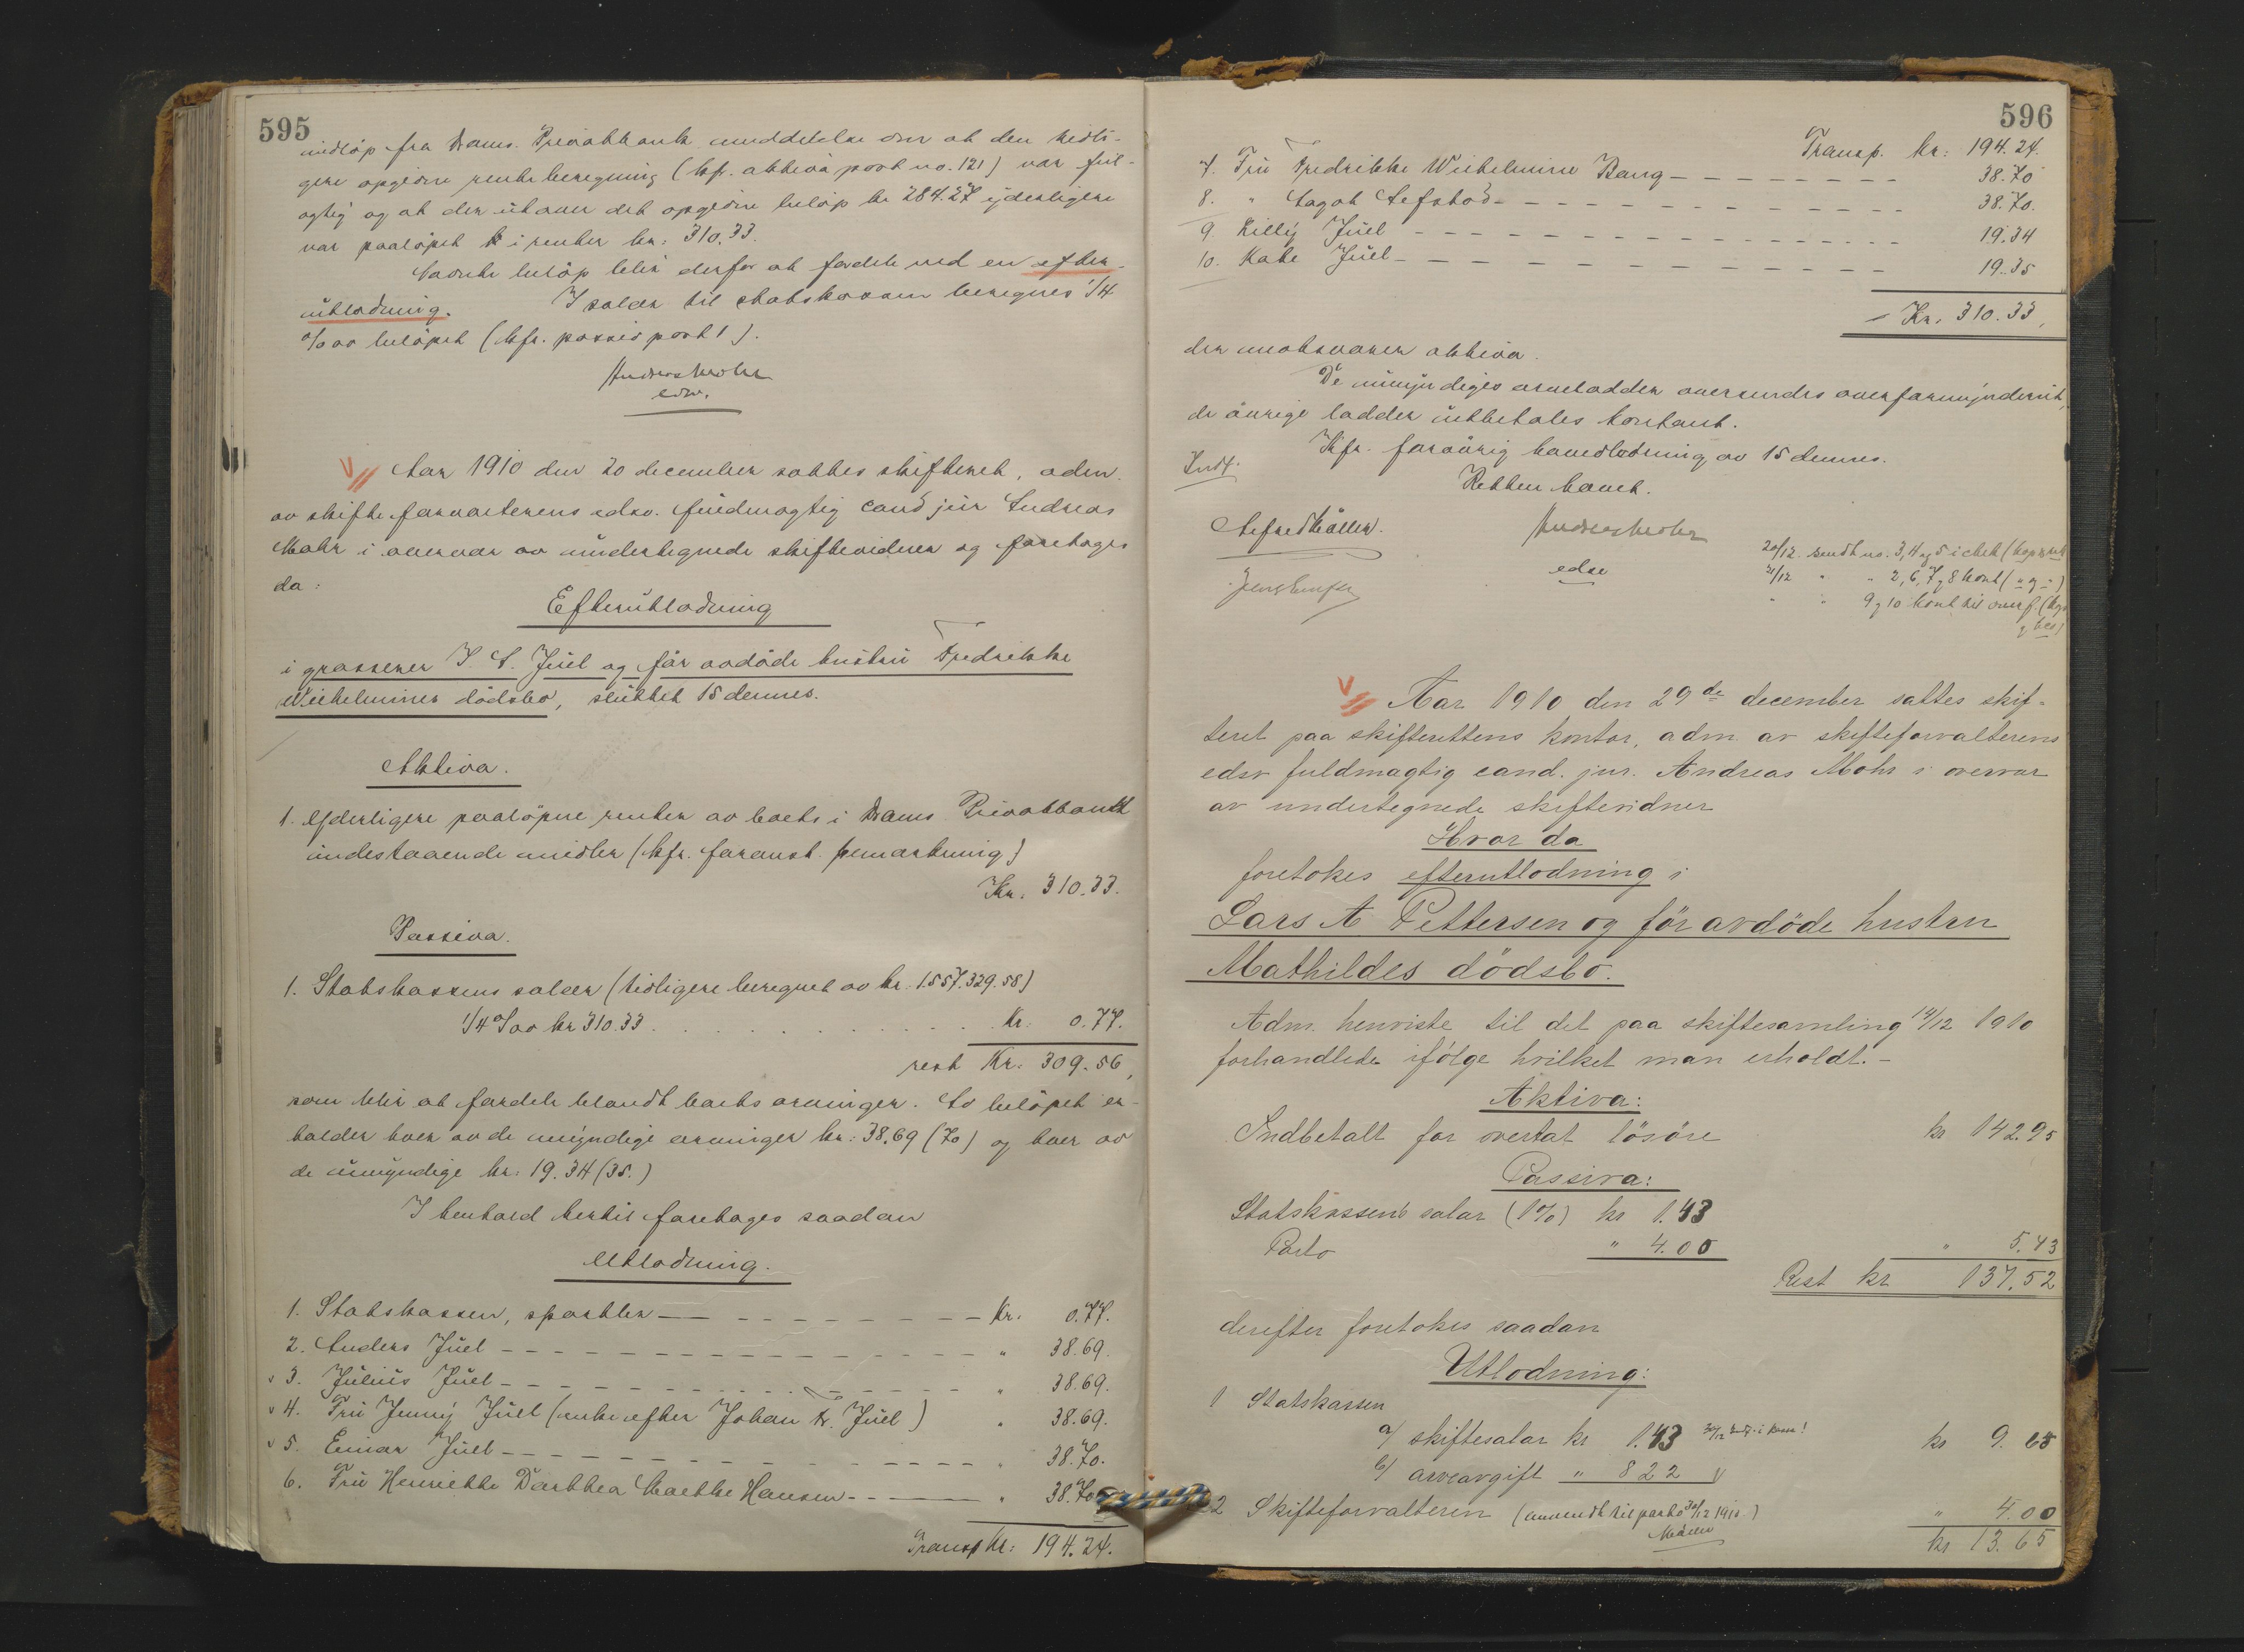 595
indløp fra Drams. Privatbank meddelelse om at den tidli-
gere opgivne renteberegning (kfr. aktiva post no. 121) var feil-
agtig og at der utover det opgivne beløp kr 284.27 yderligere
var paaløpet i renter kr: 310.33.
Nævnte beløp blir derfor at fordele ved en efter-
utlodning. I salær til statskassen beregnes 1/4
% av beløpet (kfr. passiv post 1).
Andreas Mohr
edsv.
Aar 1910 den 20 december sattes skifteret, adm.
av skifteforvalterens edsv. fuldmægtig cand jur Andreas
Mohr i overvær av undertegnede skiftevidner og foretages
da:
Efterutlodning
i grosserer J A. Juel og før avdøde hustru Fredrikke
Wilhelmines dødsbo, sluttet 15 dennes.
Aktiva.
1. Yderligere paaløpne renter av boets i Drams Privatbank
indestaaende midler (kfr. foranst. bemerkning)
Kr. 310.33.
Passiva.
1. Statskassens salær (tidligere beregnet av kr. 1.557.329.58)
1/4 % av kr 310.33 . . . Kr: 0.77.
rest Kr. 309.56,
som blir at fordele blandt boets arvinger. Av beløpet er-
holder hver av de myndige arvinger kr: 38.69 (70) og hver av
de umyndige kr: 19.34 (35.)
I henhold hertil foretages saadan
Utlodning.
1. Statskassen, sportler — Kr. 0.77.
2. Anders Juel - " 38.69.
v 3. Julius Juel - " 38.69.
v 4. Fru Jenny Juel (enke efter Johan Fr. Juel) " 38.69.
v 5. Einar Juel - " 38.70.
6. Fru Henrikke Dorthea Hansen - " 38.70
Transp kr: 194.24.
596
Transp. kr: 194.24.
7. Fru Fredrikke Wilhelmine Bang - 38.70
8. " Aagot - 38.70.
9. Lilly Juel - 19.34
10. Kate Juel - 19.35
Kr. 310.33,
der motsvarer aktiva.
De umyndiges arvelodder oversendes overformynderiet,
de øvrige lodder utbetales kontant.
Kfr. forøvrig hovedlodning av 15 dennes.
Indf.
Retten hævet.
Andreas Mohr
edsv
20/12 sendt no. 3, 4 og 5 i chek
21/12 " " 2, 6, 7 og 8 kont
" " 9 og 10 kont til overf.
Aar 1910 den 29de december sattes skif-
teret paa skifterettens kontor, adm. av skifteforvalterens
edsv fuldmægtig cand. jur. Andreas Mohr i overvær
av undertegnede skiftevidner
Hvor da
foretokes efterutlodning i
Lars A Pettersen og før avdøde hustru
Mathildes dødsbo.
Adm. henviste til det paa skiftesamling 19/12 1910
forhandlede ifølge hvilket man erholdt. -
Aktiva:
Indbetalt for overtat løsøre kr 142.95
Passiva:
Statskassens salær (1%) kr 1.43
Porto " 4.00 " 5.43
Rest kr 137.52
derefter foretokes saadan
Utlodning:
1 Statskassen
a/ skiftesalær kr 1.43 kr 9.65
b/ arveavgift " 8 22
2 Skifteforvalteren (anvendt til porto 30/12 1910) " 4.00
kr 13.65